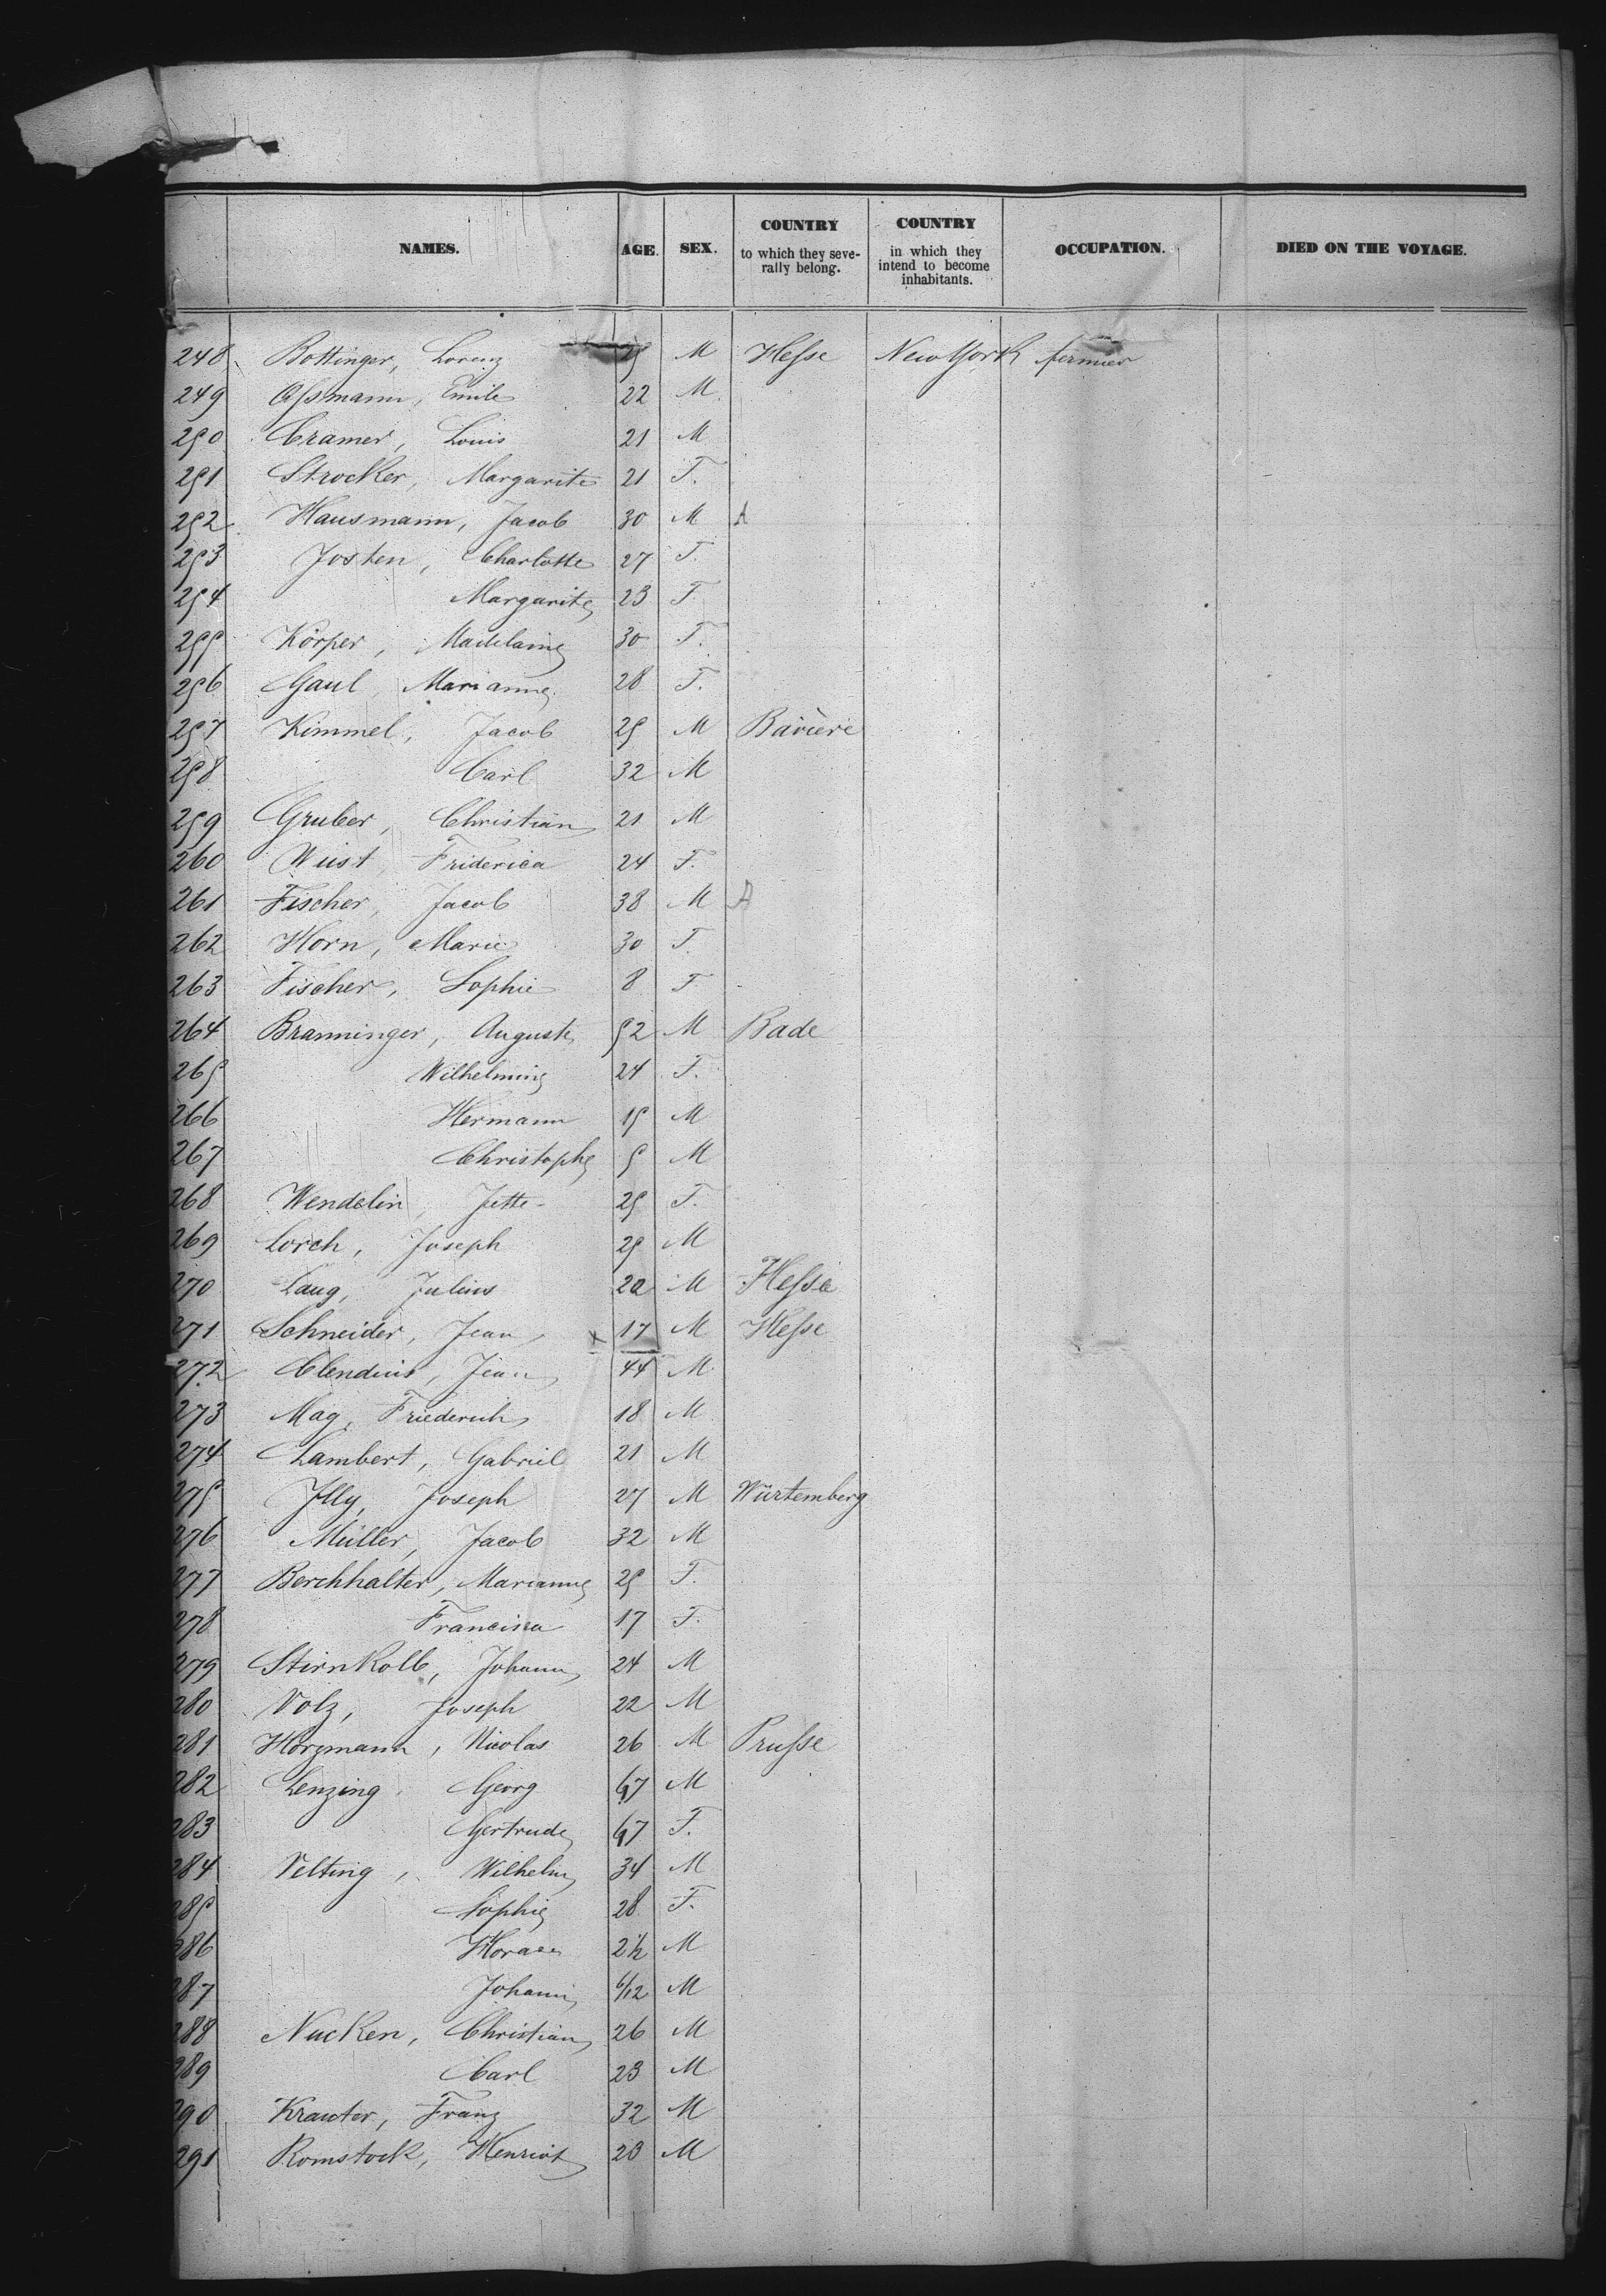 NAMES. AGE. SEX. COUNTRY to which they severally belong. COUNTRY in which they intend to become inhabitants. OCCUPATION. DIED ON THE VOYAGE.
248 Bottinger, Lorenz M Hesse New York fermier
249 Assmann, Emile 22 M.
250 Cramer, Louis 21 M
251 Strocker, Margarite 21 F.
252 Hausmann, Jacob 30 M A
253 Josten, Charlotte 27 F.
254 Margarite 23 F
255 Körper, Madelaine 30 F.
256 Gaul, Marianne 28 F.
257 Kimmel, Jacob 25 M Bavière
258 Carl 32 M
259 Gruber, Christian 21 M
260 Wüst, Friderica 24 F.
261 Fischer, Jacob 38 M A
262 Horn, Marie 30 F.
263 Fischer, Sophie 8 F
264 Branninger, Auguste 52 M Bade
265 Wilhelmine 24 F.
266 Hermann 15 M
267 Christophe 5 M
268 Wendelin, Jette 25 F.
269 Lorch, Joseph 25 M
270 Laug, Julius 22 M Hesse
271 Schneider, Jean x 17 M Hesse
272 Jean 44 M
273 Mag, Friederich 18 M
274 Lambert, Gabriel 21 M
275 Jlly, Joseph 27 M Würtemberg
276 Müller, Jacob 32 M
277 Berchhalter, Marianne 25 F.
278 Francisca 17 F.
279 Stirnkolb, Johann 24 M
280 Volz, Joseph 22 M
281 Horzmann, Nicolas 26 M Prusse
282 Lenzing, Georg 67 M
283 Gertrude 67 F.
284 Velting, Wilhelm 34 M
285 Sophie 28 F.
286 Horace 2½ M
287 Johann 6/12 M
288 Nucken, Christian 26 M
289 Carl 23 M
290 Krauter, Franz 32 M
291 Romstock, Henriot 23 M